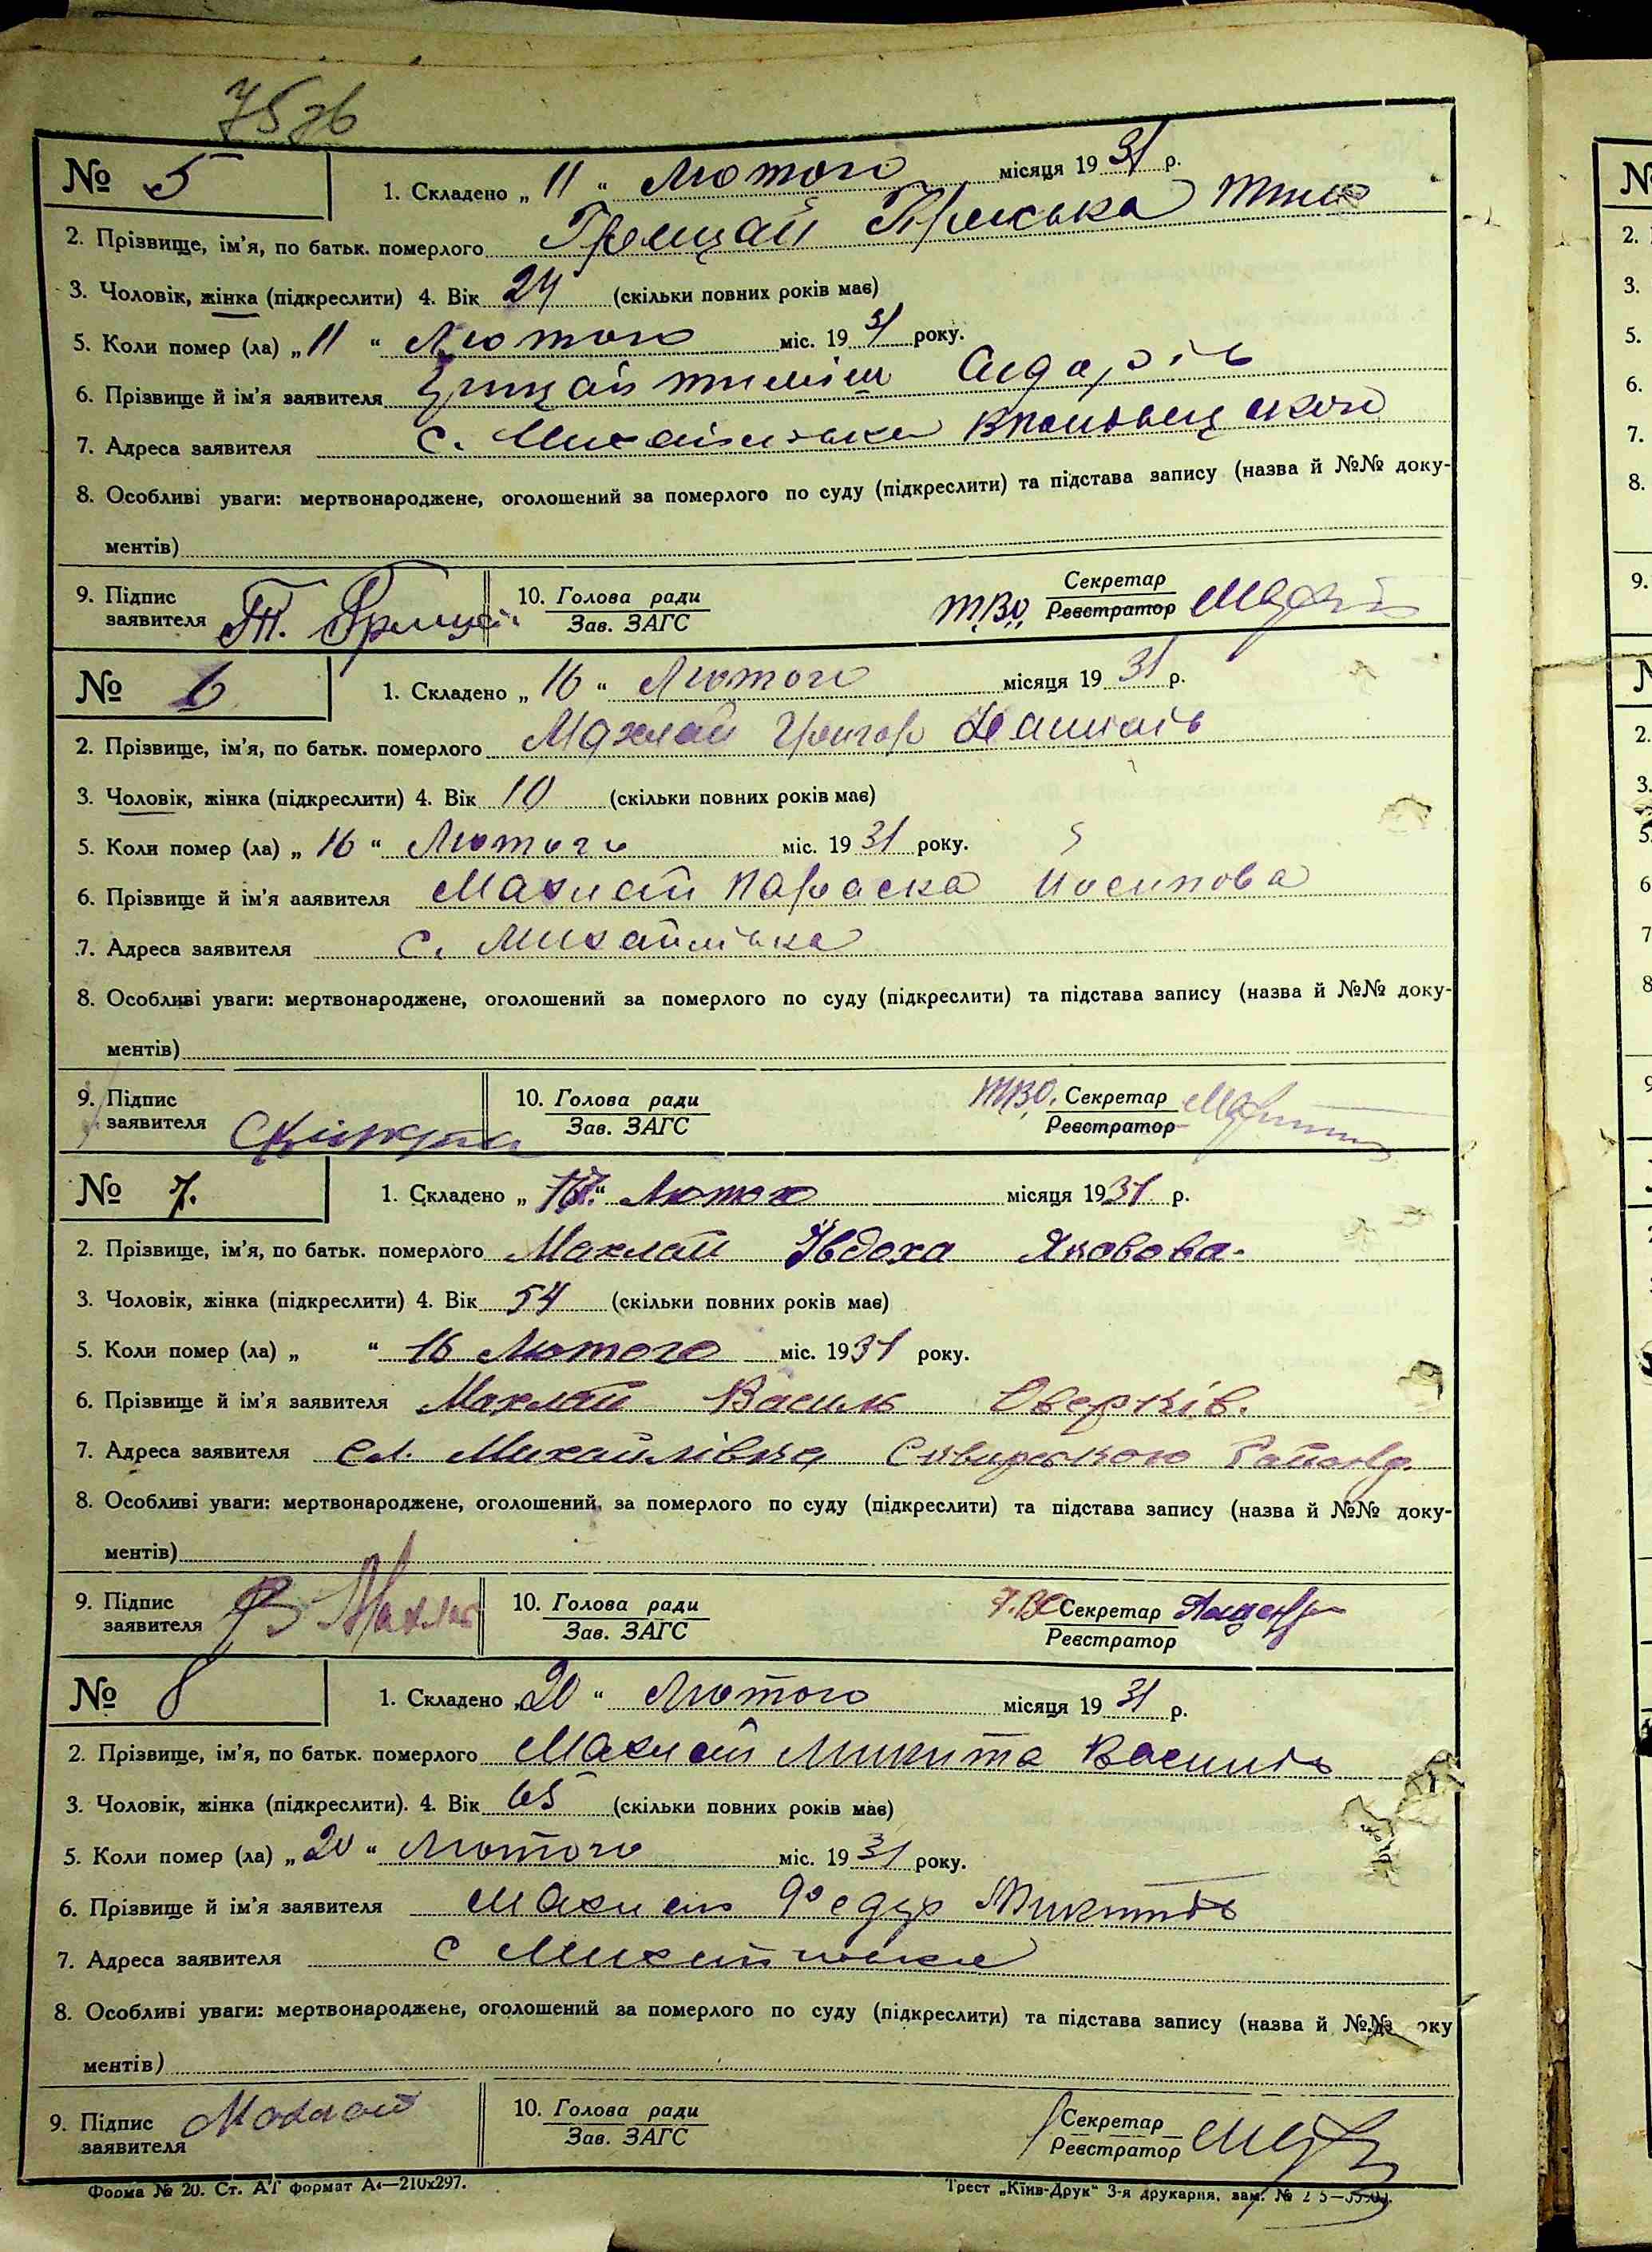 75 зв
№ 5
1. Складено „ 11 “ Лютого місяця 1931 р.
2. Прізвище, ім'я, по батьк. померлого Грицай Пріська
3. Чоловік, жінка (підкреслити) 4. Вік 24 (скільки повних років має)
5. Коли помер (ла) „ 11 “ Лютого міс. 1931 року.
6. Прізвище й ім'я заявителя Грицай Сидорів
7. Адреса заявителя с. Михайлівка
8. Особливі уваги: мертвонароджене, оголошений за померлого по суду (підкреслити) та підстава запису (назва й №№ доку-
ментів)
9. Підпис заявителя Т. Грицай
10. Голова ради
Зав. ЗАГС
ТВО Секретар
Реєстратор
№ 6
1. Складено „ 16 “ Лютого місяця 1931 р.
2. Прізвище, ім'я, по батьк. померлого Махлай Григор
3. Чоловік, жінка (підкреслити) 4. Вік 10 (скільки повних років має)
5. Коли помер (ла) „ 16 “ Лютого міс. 1931 року.
6. Прізвище й ім'я заявителя Махлай Параска Йосипова
7. Адреса заявителя с. Михайлівка
8. Особливі уваги: мертвонароджене, оголошений за померлого по суду (підкреслити) та підстава запису (назва й №№ доку-
ментів)
9. Підпис заявителя
10. Голова ради
Зав. ЗАГС
ТВО. Секретар
Реєстратор
№ 7.
1. Складено „ “ Лютого місяця 1931 р.
2. Прізвище, ім'я, по батьк. померлого Махлай Явдоха Яковова.
3. Чоловік, жінка (підкреслити) 4. Вік 54 (скільки повних років має)
5. Коли помер (ла) „ “ 16 Лютого міс. 1931 року.
6. Прізвище й ім'я заявителя Махлай Василь Оверків.
7. Адреса заявителя сл. Михайлівка Сквирського Району
8. Особливі уваги: мертвонароджене, оголошений за померлого по суду (підкреслити) та підстава запису (назва й №№ доку-
ментів)
9. Підпис заявителя В Махлай
10. Голова ради
Зав. ЗАГС
Т.ВО Секретар
Реєстратор
№ 8
1. Складено „20 “ Лютого місяця 1931 р.
2. Прізвище, ім'я, по батьк. померлого Махлай Микита Василів
3. Чоловік, жінка (підкреслити). 4. Вік 65 (скільки повних років має)
5. Коли помер (ла) „ 20 “ Лютого міс. 1931 року.
6. Прізвище й ім'я заявителя Махлай Федур Микитів
7. Адреса заявителя с Михайлівка
8. Особливі уваги: мертвонароджене, оголошений за померлого по суду (підкреслити) та підстава запису (назва й №№ доку
ментів)
9. Підпис заявителя Махлай
10. Голова ради
Зав. ЗАГС
Секретар
Реєстратор
Форма № 20. Ст. АЇ формат А4—210x297.
Трест „Київ-Друк“ 3-я друкарня, зам. №